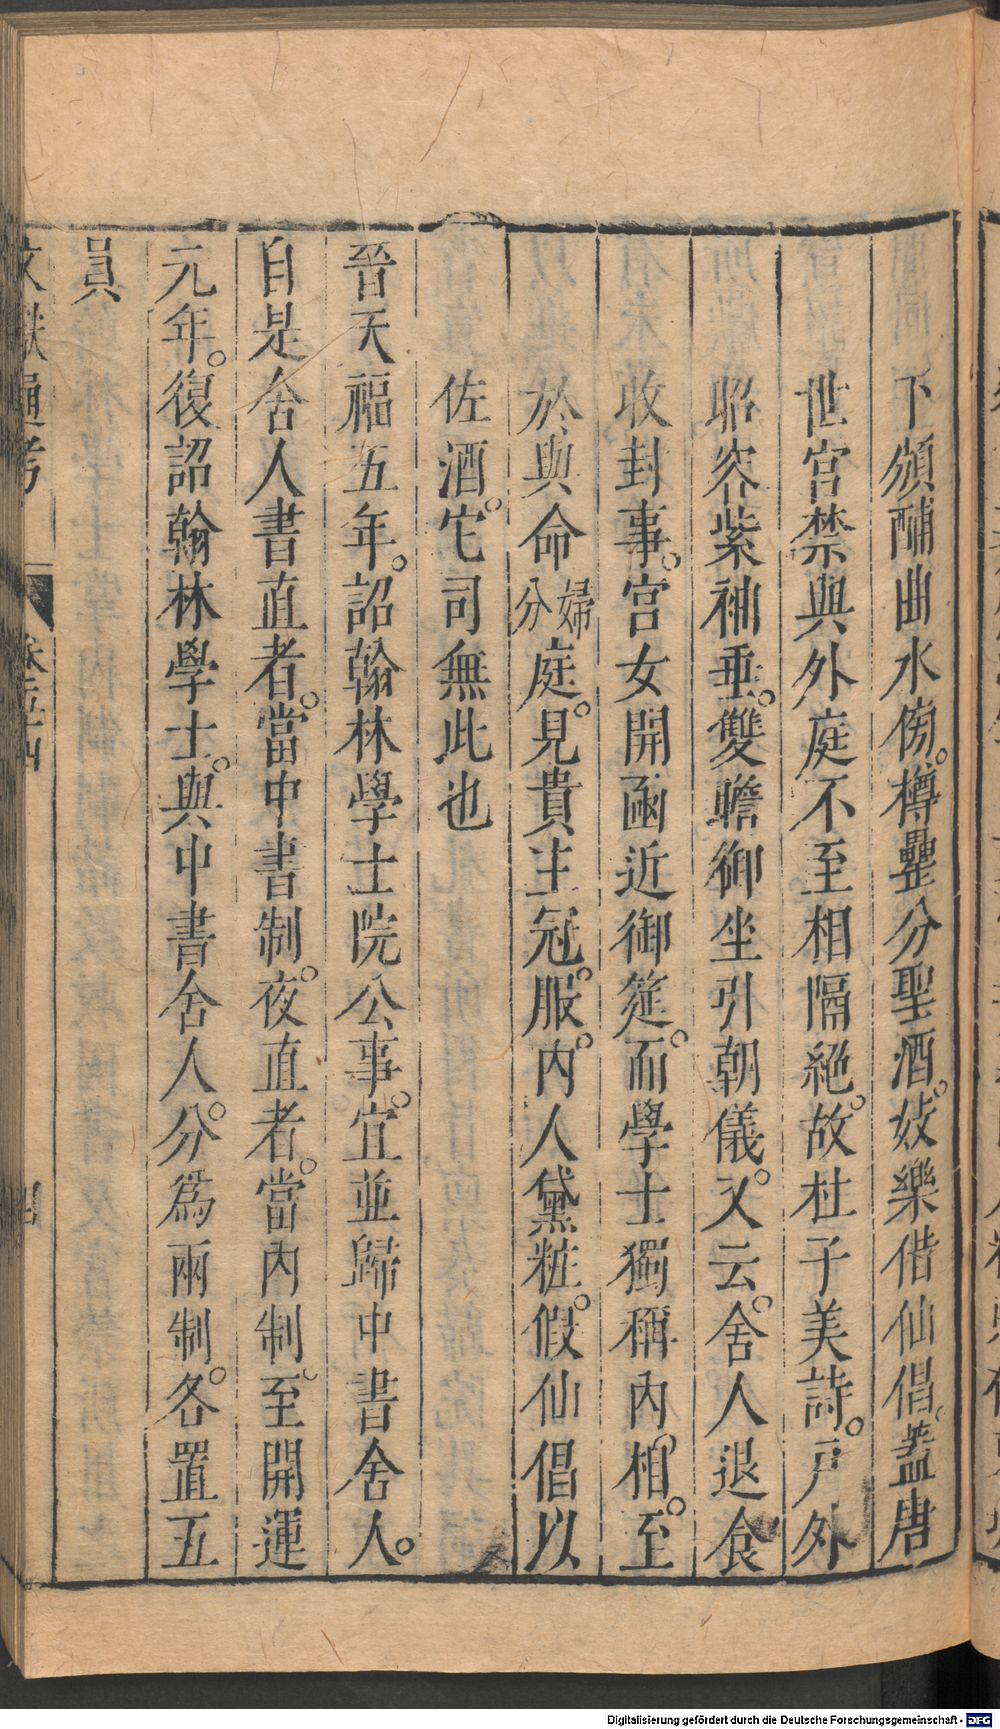 下頒酺曲水傍。樽罍分聖酒。妓樂偕仙倡。蓋唐
世宮禁與外庭不至相隔絶。故杜子美詩。戸外
昭容紫袖垂。雙瞻御坐引朝儀。又云。舍人退食
收封事。宮女開函近御筵。而學士獨稱內相。至
於與命婦分庭。見貴主冠服。內人黛粧。假仙倡以
佐酒。它司無此也
晉天福五年。詔翰林學士院公事。宜並歸中書舍人。
自是舍人書直者。當中書制。夜直者。當內制。至開運
元年。復詔翰林學士。與中書舍人。分爲兩制。各置五
員
文獻通考 卷五十四 四
Digitalisierung gefördert durch die Deutsche Forschungsgemeinschaft - DFG